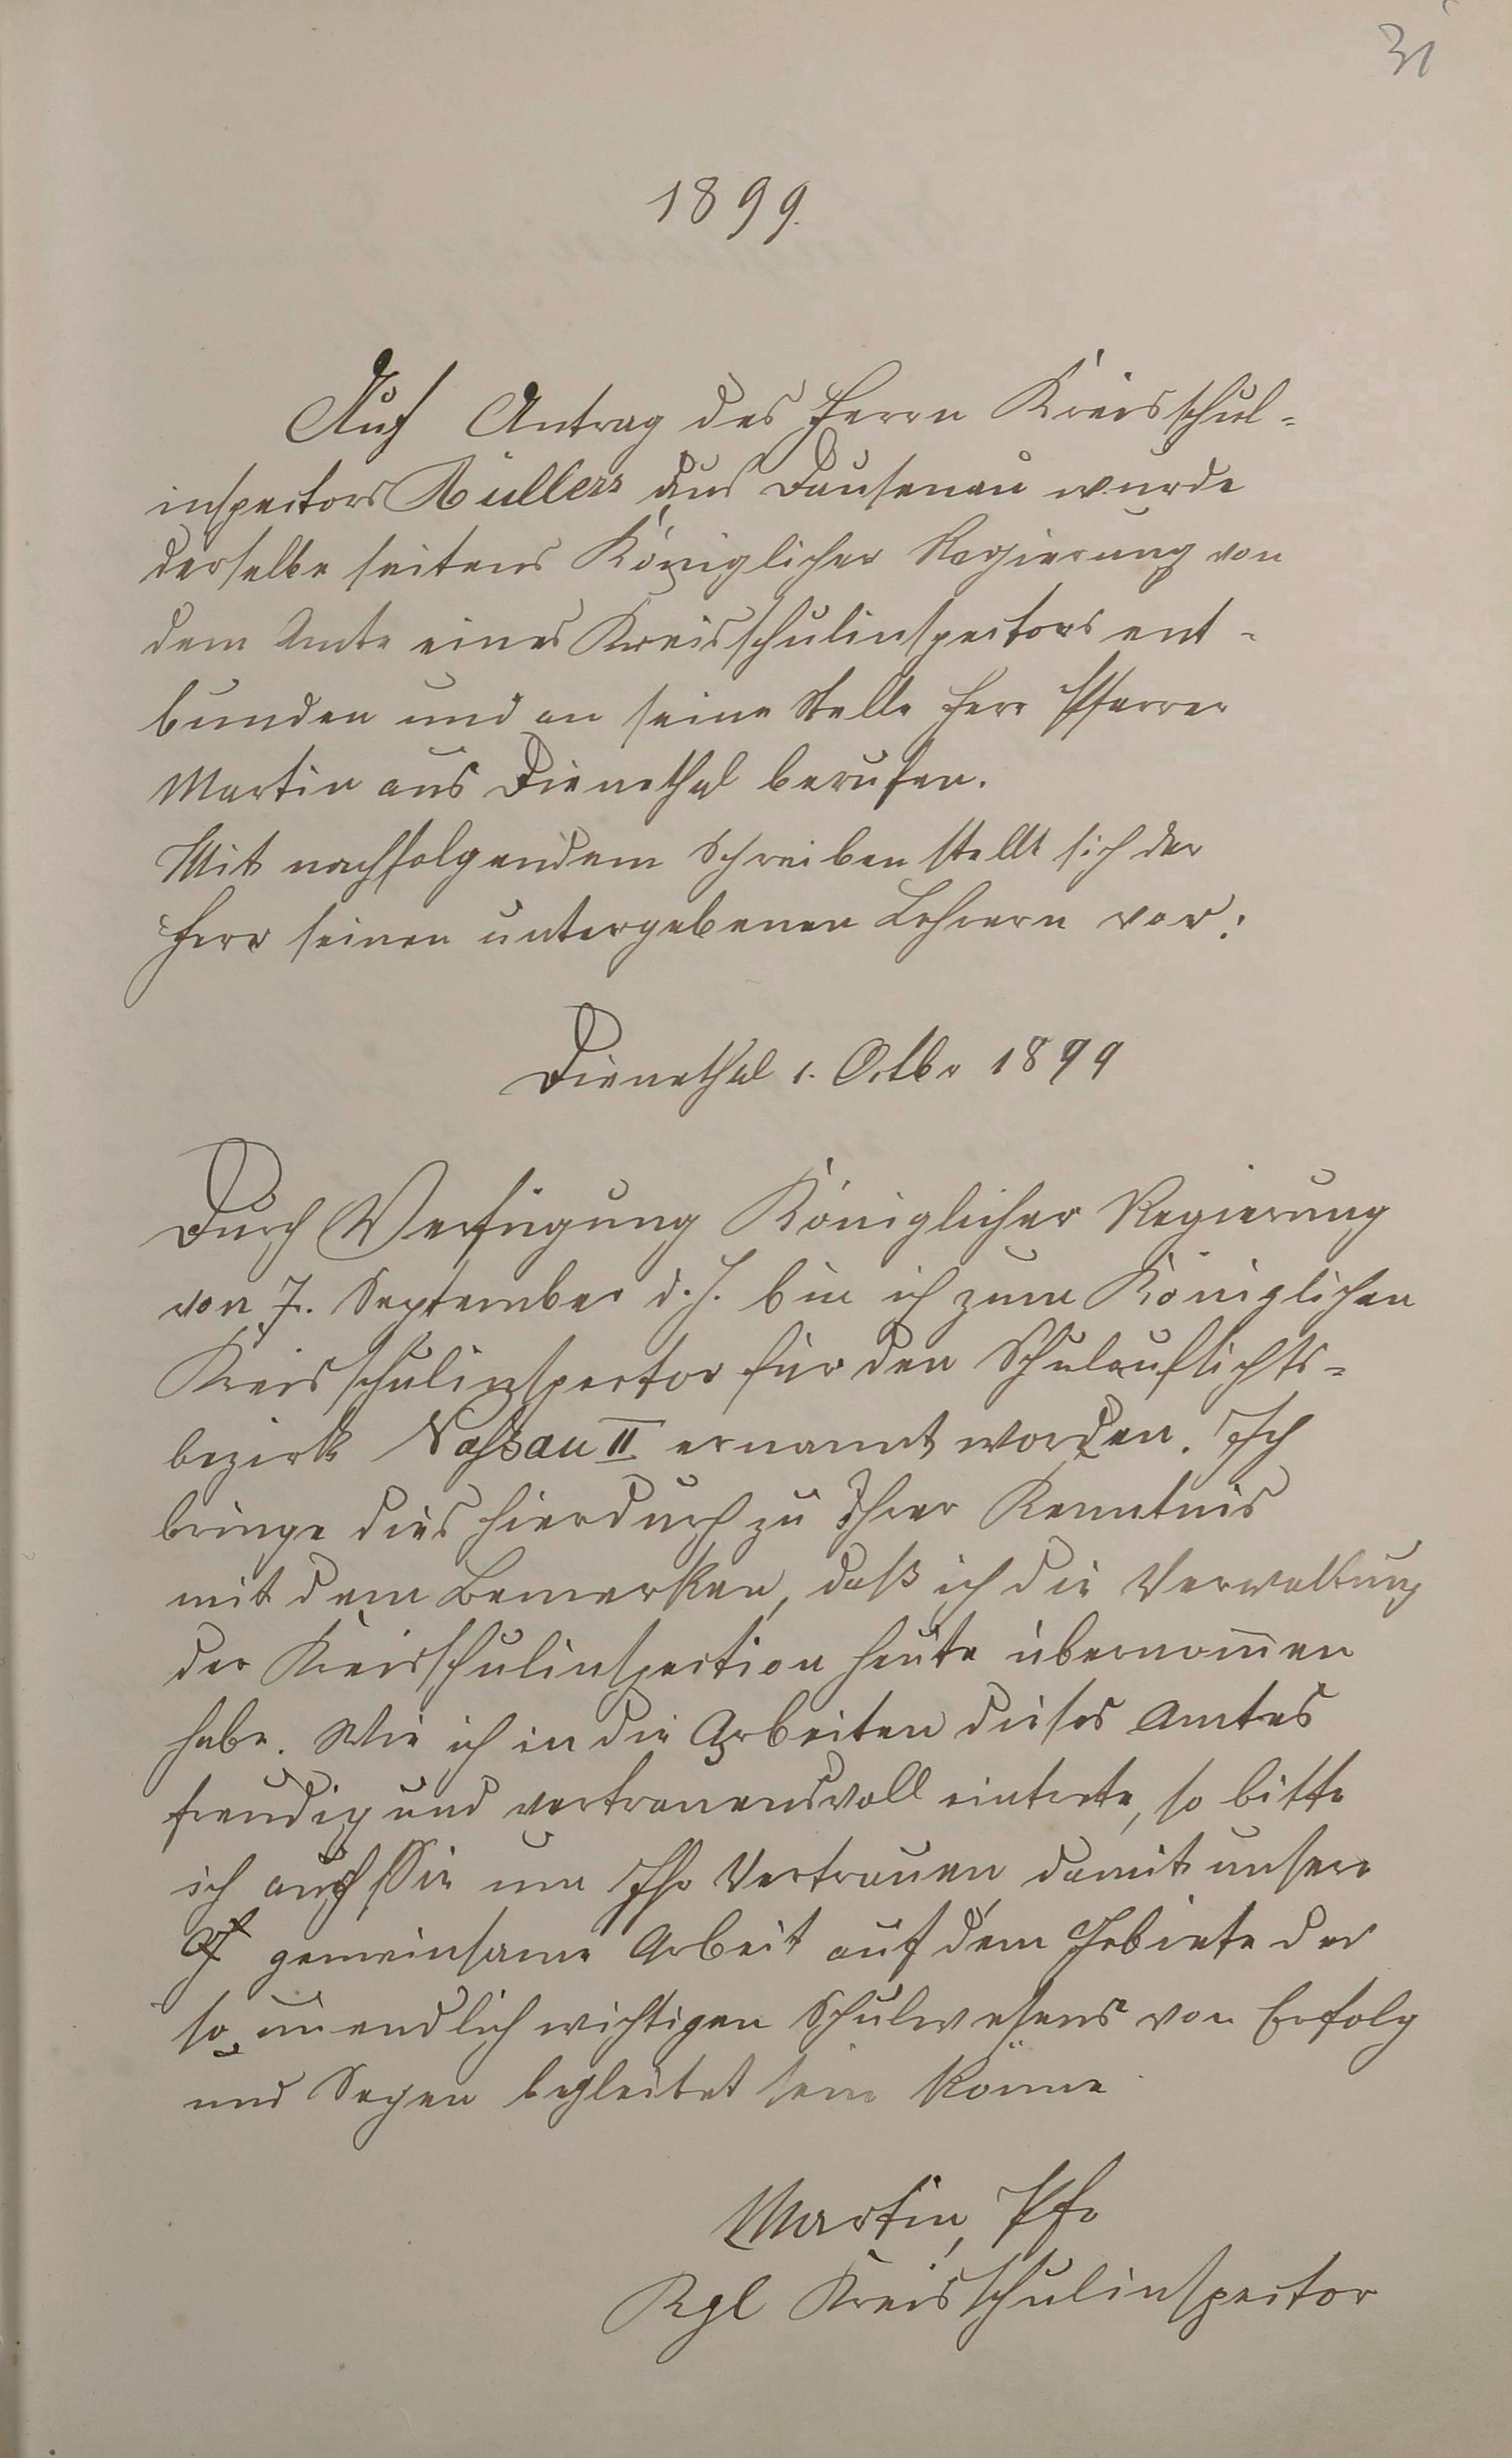 31
1899.
Auf Antrag des Herrn Kreisschul-
inspectors Müllers aus Dausenau wurde
derselbe seitens Königlicher Regierung von
dem Amte eines Kreisschulinspectors ent-
bunden und an seine Stelle Herr Pfarrer
Martin aus Dienethal berufen.
Mit nachfolgendem Schreiben stellt sich der
Herr seinen untergebenen Lehrern vor:
Dienethal 1. Octbr 1899
Durch Verfügung Königlicher Regierung
von 7. September d. J. bin ich zum Königlichen
Kreisschulinspector für den Schulaufsichts-
bezirk Nassau II ernannt worden. Ich
bringe dies hierdurch zu Ihrer Kenntnis
mit dem Bemerken, daß ich die Verwaltung
der Kreisschulinspection heute übernom̅en
habe. Wie ich in die Arbeiten dieses Amtes
freudig und vertrauensvoll eintrete, so bitte
ich auch Sie um Ihr Vertrauen, damit unsere
gemeinsame Arbeit auf dem Gebiete des
so unendlich wichtigen Schulwesens von Erfolg
und Segen begleitet sein könne.
Martin, Pfr
Kgl Kreisschulinspector